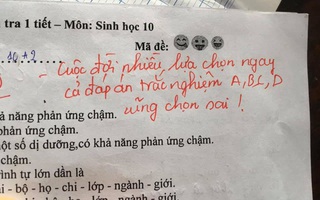 tra 1 tiết – Môn: Sinh học 10
10 A2
Mã đề:
- Cuộc đời nhiều lựa chọn ngay
cả đáp án trắc nghiệm A,B,C,D
cũng chọn sai !
ả năng phản ứng chậm.
phản ứng chậm.
một số dị dưỡng,có khả năng phản ứng chậm.
chậm.
rình tự lớn dần là
ài - bộ - họ - chi - lớp - ngành - giới.